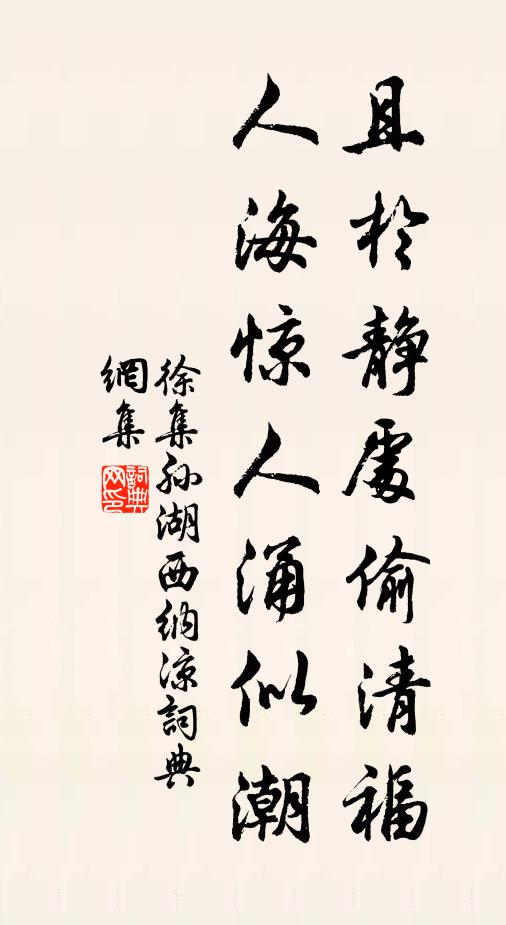 且於静處偷清福
人海惊人涌似潮
徐集孙湖西纳凉詞典
網集
詞典網印